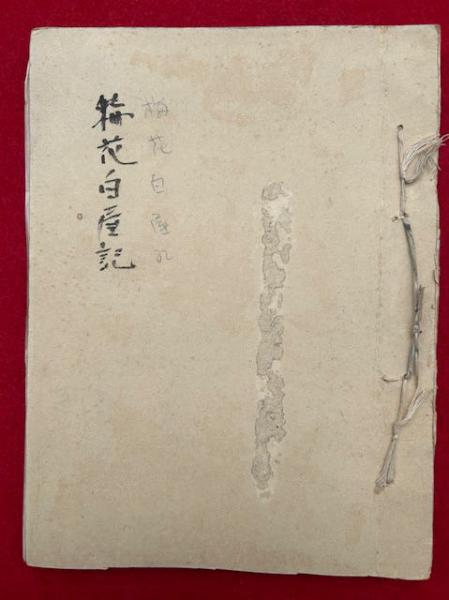 梅花白屋記
梅花白屋記